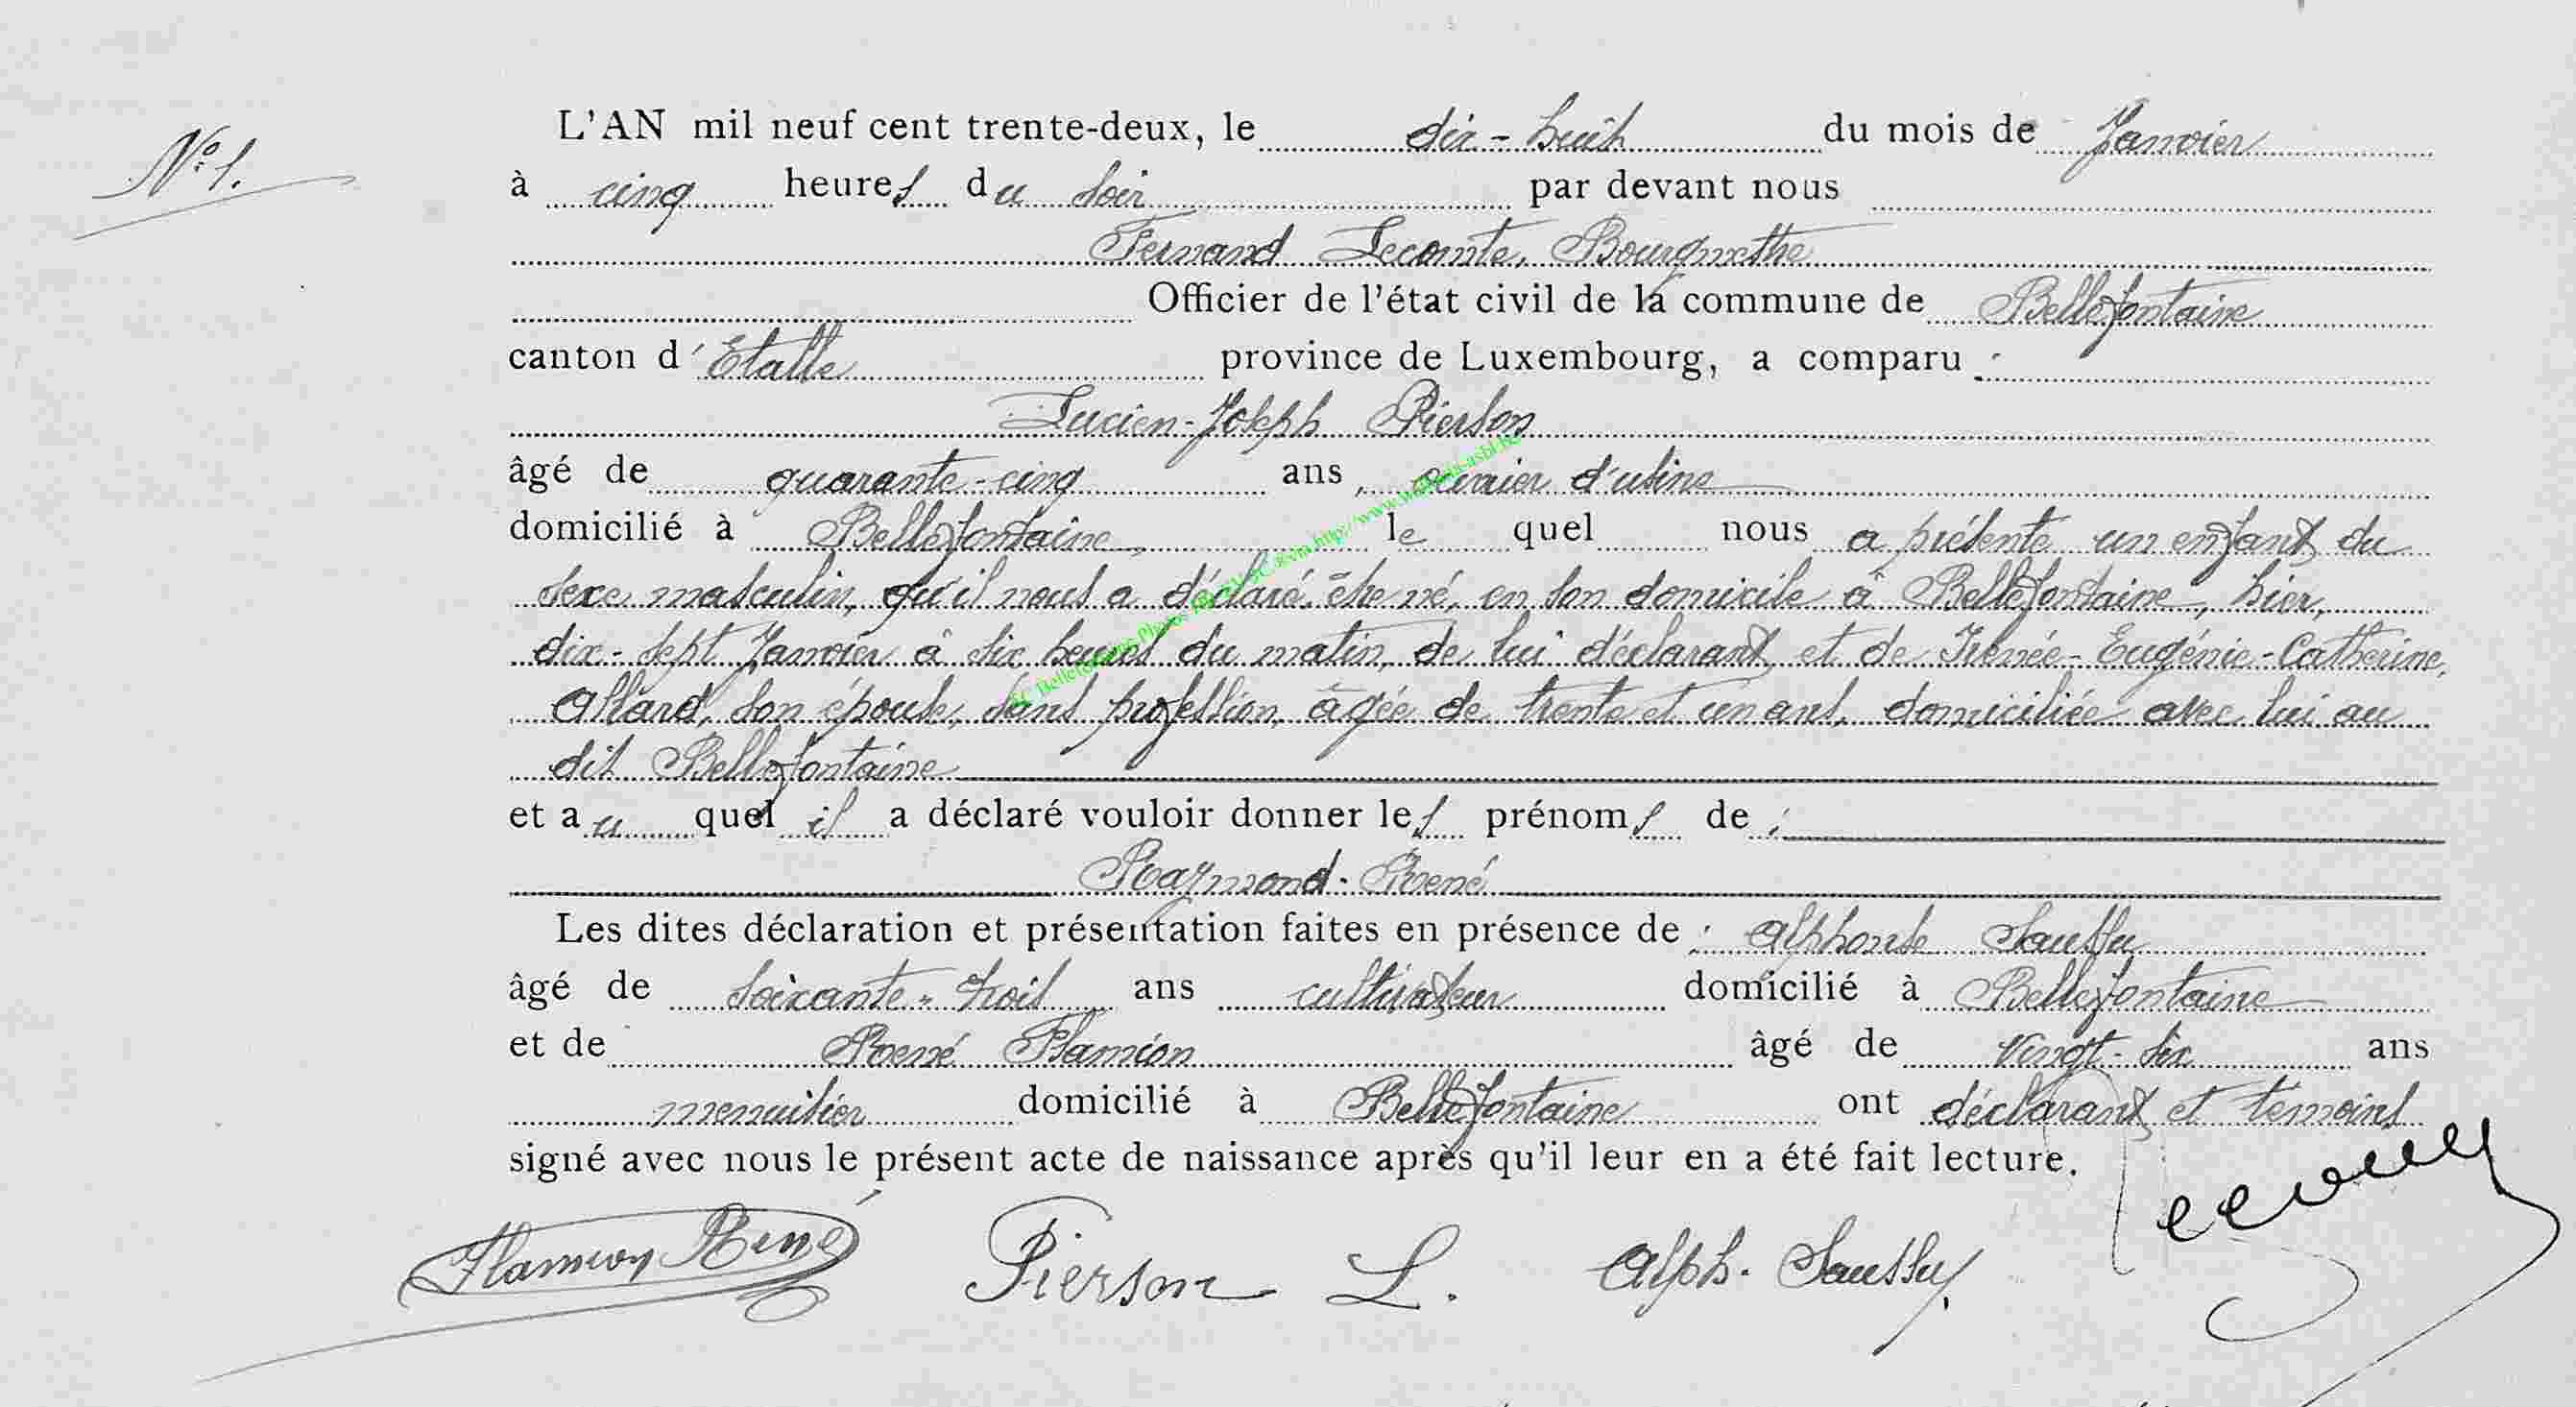 N° 1.
L'AN mil neuf cent trente-deux, le dix-huit du mois de Janvier
à cinq heures du soir par devant nous
Fernand Lecomte, Bourgmestre
Officier de l'état civil de la commune de Bellefontaine
canton d'Etalle province de Luxembourg, a comparu :
Lucien-Joseph Pierson
âgé de quarante-cinq ans, ouvrier d'usine
domicilié à Bellefontaine, le quel nous a présenté un enfant du
sexe masculin, qu'il nous a déclaré être né, en son domicile à Bellefontaine, hier,
dix-sept Janvier à six heures du matin, de lui déclarant et de Irénée-Eugénie-Catherine
Allard, son épouse, sans profession, âgée de trente et un ans, domiciliée avec lui au
dit Bellefontaine
et au quel il a déclaré vouloir donner les prénoms de :
Raymond-René
Les dites déclaration et présentation faites en présence de : Alphonse Saussu
âgé de soixante-trois ans cultivateur domicilié à Bellefontaine
et de René Flamion âgé de vingt-six ans
menuisier domicilié à Bellefontaine ont déclarant et témoins
signé avec nous le présent acte de naissance après qu'il leur en a été fait lecture.
Flamion René Pierson L. Alph. Saussu